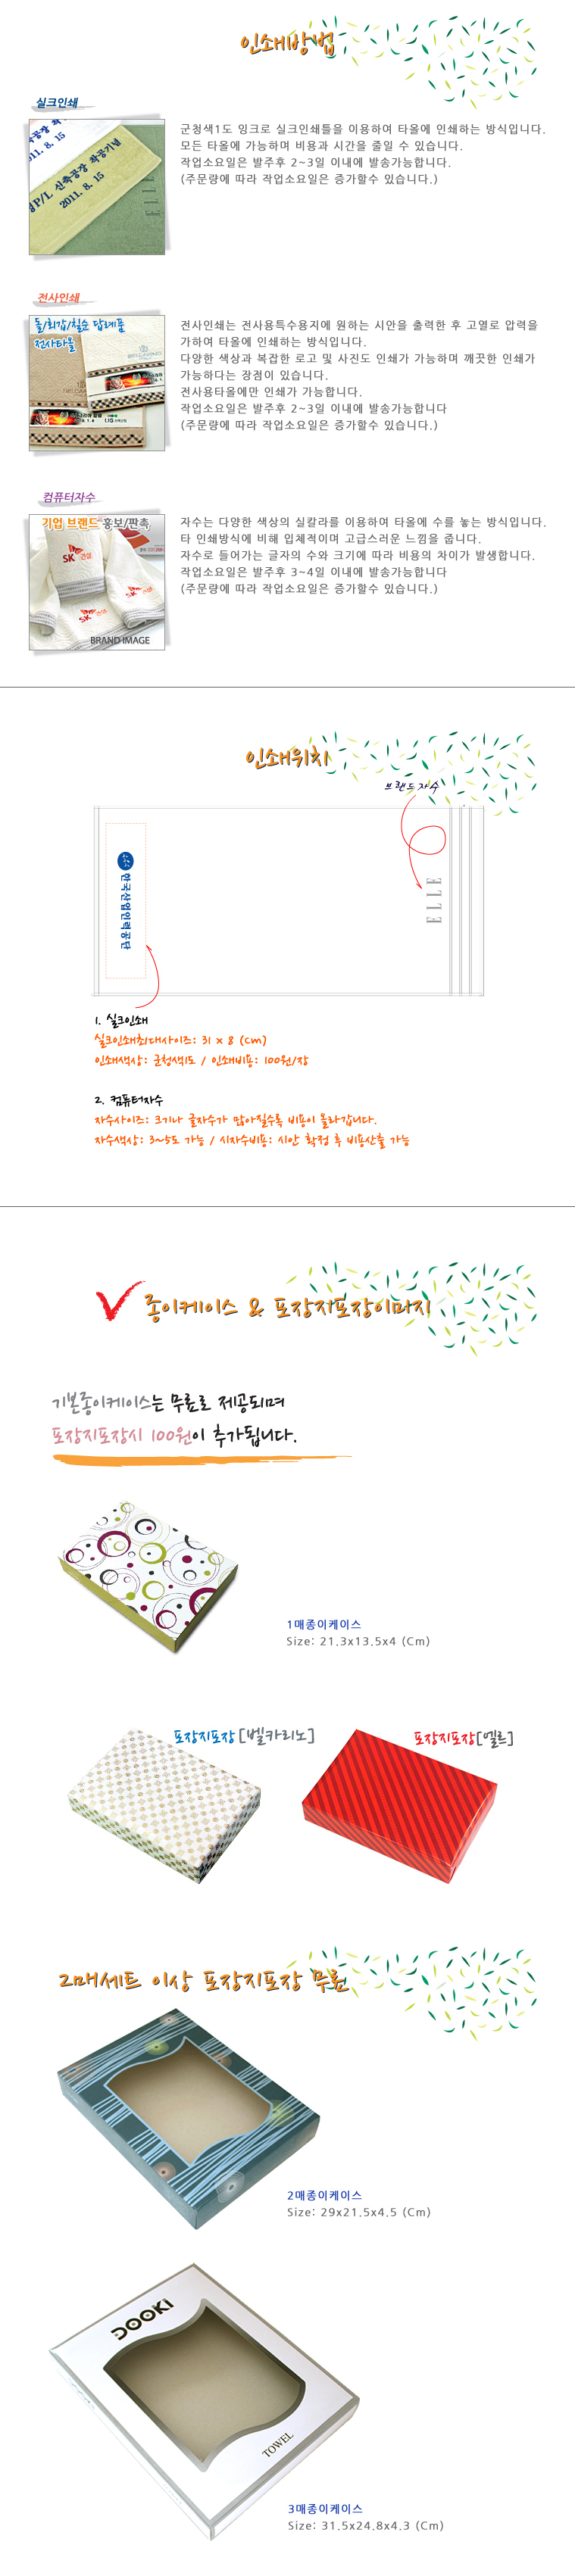 인쇄방법
실크인쇄
군청색1도 잉크로 실크인쇄틀을 이용하여 타올에 인쇄하는 방식입니다.
모든 타올에 가능하며 비용과 시간을 줄일 수 있습니다.
작업소요일은 발주후 2~3일 이내에 발송가능합니다.
(주문량에 따라 작업소요일은 증가할수 있습니다.)
2011. 8. 15
P/L 신축공장 착공기념
2011. 8. 15
전사인쇄
돌/회갑/칠순 답례품
전사타올
전사인쇄는 전사용특수용지에 원하는 시안을 출력한 후 고열로 압력을
가하여 타올에 인쇄하는 방식입니다.
다양한 색상과 복잡한 로고 및 사진도 인쇄가 가능하며 깨끗한 인쇄가
가능하다는 장점이 있습니다.
전사용타올에만 인쇄가 가능합니다.
작업소요일은 발주후 2~3일 이내에 발송가능합니다
(주문량에 따라 작업소요일은 증가할수 있습니다.)
컴퓨터자수
기업 브랜드 홍보/판촉
SK건설
SK건설
BRAND IMAGE
자수는 다양한 색상의 실칼라를 이용하여 타올에 수를 놓는 방식입니다.
타 인쇄방식에 비해 입체적이며 고급스러운 느낌을 줍니다.
자수로 들어가는 글자의 수와 크기에 따라 비용의 차이가 발생합니다.
작업소요일은 발주후 3~4일 이내에 발송가능합니다
(주문량에 따라 작업소요일은 증가할수 있습니다.)
인쇄위치
브랜드자수
한국산업인력공단
ELLE
1. 실크인쇄
실크인쇄최대사이즈: 31 x 8 (cm)
인쇄색상: 군청색1도 / 인쇄비용: 100원/장
2. 컴퓨터자수
자수사이즈: 크기나 글자수가 많아질수록 비용이 올라갑니다.
자수색상: 3~5도 가능 / 시자수비용: 시안 확정 후 비용산출 가능
종이케이스 & 포장지포장이미지
기본종이케이스는 무료로 제공되며
포장지포장시 100원이 추가됩니다.
1매종이케이스
Size: 21.3x13.5x4 (Cm)
포장지포장 [벨카리노]
포장지포장[엘르]
2매세트 이상 포장지포장 무료
2매종이케이스
Size: 29x21.5x4.5 (Cm)
DOOKI
TOWEL
3매종이케이스
Size: 31.5x24.8x4.3 (Cm)